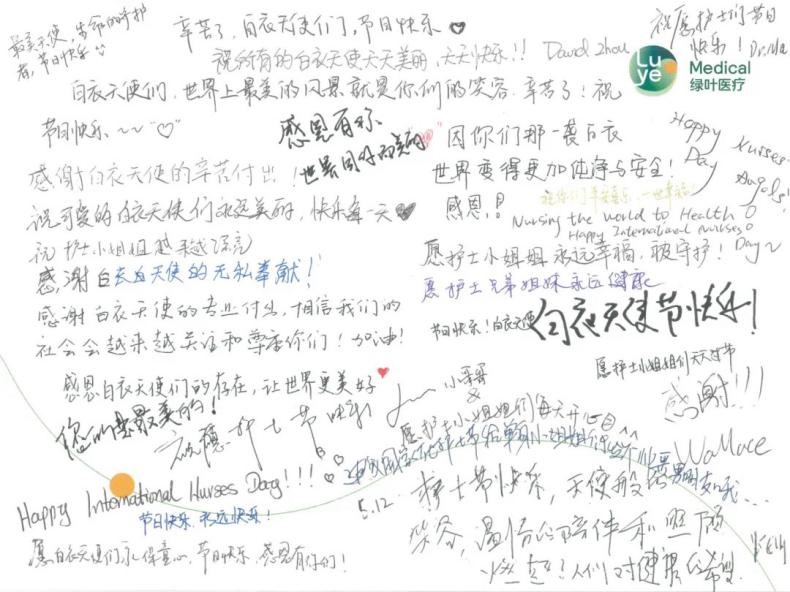 最美天使，生命的守护者，节日快乐
辛苦了，白衣天使们，节日快乐
祝愿护士们节日快乐！Dr. Ma
祝所有的白衣天使天天美丽，天天快乐!! David Zhou
Luye Medical
绿叶医疗
白衣天使们，世界上最美的风景就是你们的笑容，辛苦了！祝
节日快乐~~
感恩有你
世界因你而美丽
因你们那一袭白衣
世界变得更加纯净与安全！
感恩!!
Happy Nurses' Day Angels!
感谢白衣天使的辛苦付出！
祝可爱的白衣天使们永远美丽，快乐每一天
Nursing the world to Health
Happy International Nurses' Day~
祝护士小姐姐越来越漂亮
愿护士小姐姐永远幸福，被守护！
感谢白衣天使的无私奉献！
愿护士兄弟姐妹永远健康
感谢白衣天使的专业付出，相信我们的
社会会越来越关注和尊重你们！加油！
节日快乐！白衣天使
白衣天使节快乐！
愿护士小姐姐们天天过节
感谢!!!
感恩白衣天使们的存在，让世界更美好
您们是最美的！
祝愿护士节快乐
小哥哥
&
愿护士小姐姐们每天开心
Wallace
Happy International Nurses Day!!!
5.12
护士节快乐，天使般的
笑容，温情的陪伴和照顾
燃起了人们对健康的希望
Kelly
节日快乐，永远快乐！
愿白衣天使们永保童心，节日快乐，感恩有你们！